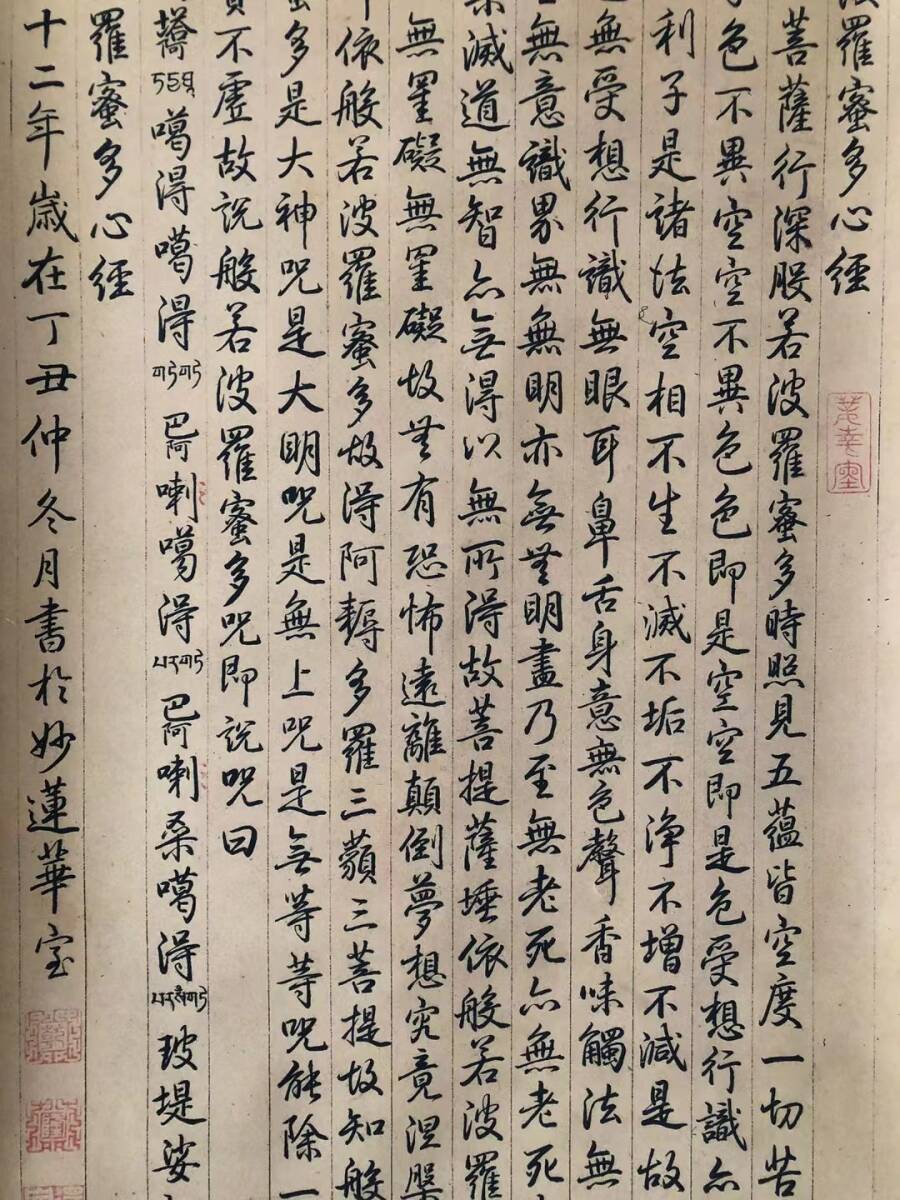 羅蜜多心經
菩薩行深般若波羅蜜多時照見五蘊皆空度一切苦
色不異空空不異色色即是空空即是色受想行識亦
利子是諸法空相不生不滅不垢不淨不增不減是故
無受想行識無眼耳鼻舌身意無色聲香味觸法無
無意識界無無明亦無無明盡乃至無老死亦無老死
滅道無智亦無得以無所得故菩提薩埵依般若波羅
無罣礙無罣礙故無有恐怖遠離顛倒夢想究竟涅槃
依般若波羅蜜多故得阿耨多羅三藐三菩提故知般
多是大神呪是大明呪是無上呪是無等等呪能除一
不虛故說般若波羅蜜多呪即說呪曰
噶得噶得 ག་ཏེ་ག་ཏེ 巴阿喇噶得 པ་ར་ག་ཏེ 巴阿喇桑噶得 པ་ར་སཾ་ག་ཏེ 玻堤娑
羅蜜多心經
十二年歲在丁丑仲冬月書於妙蓮華室